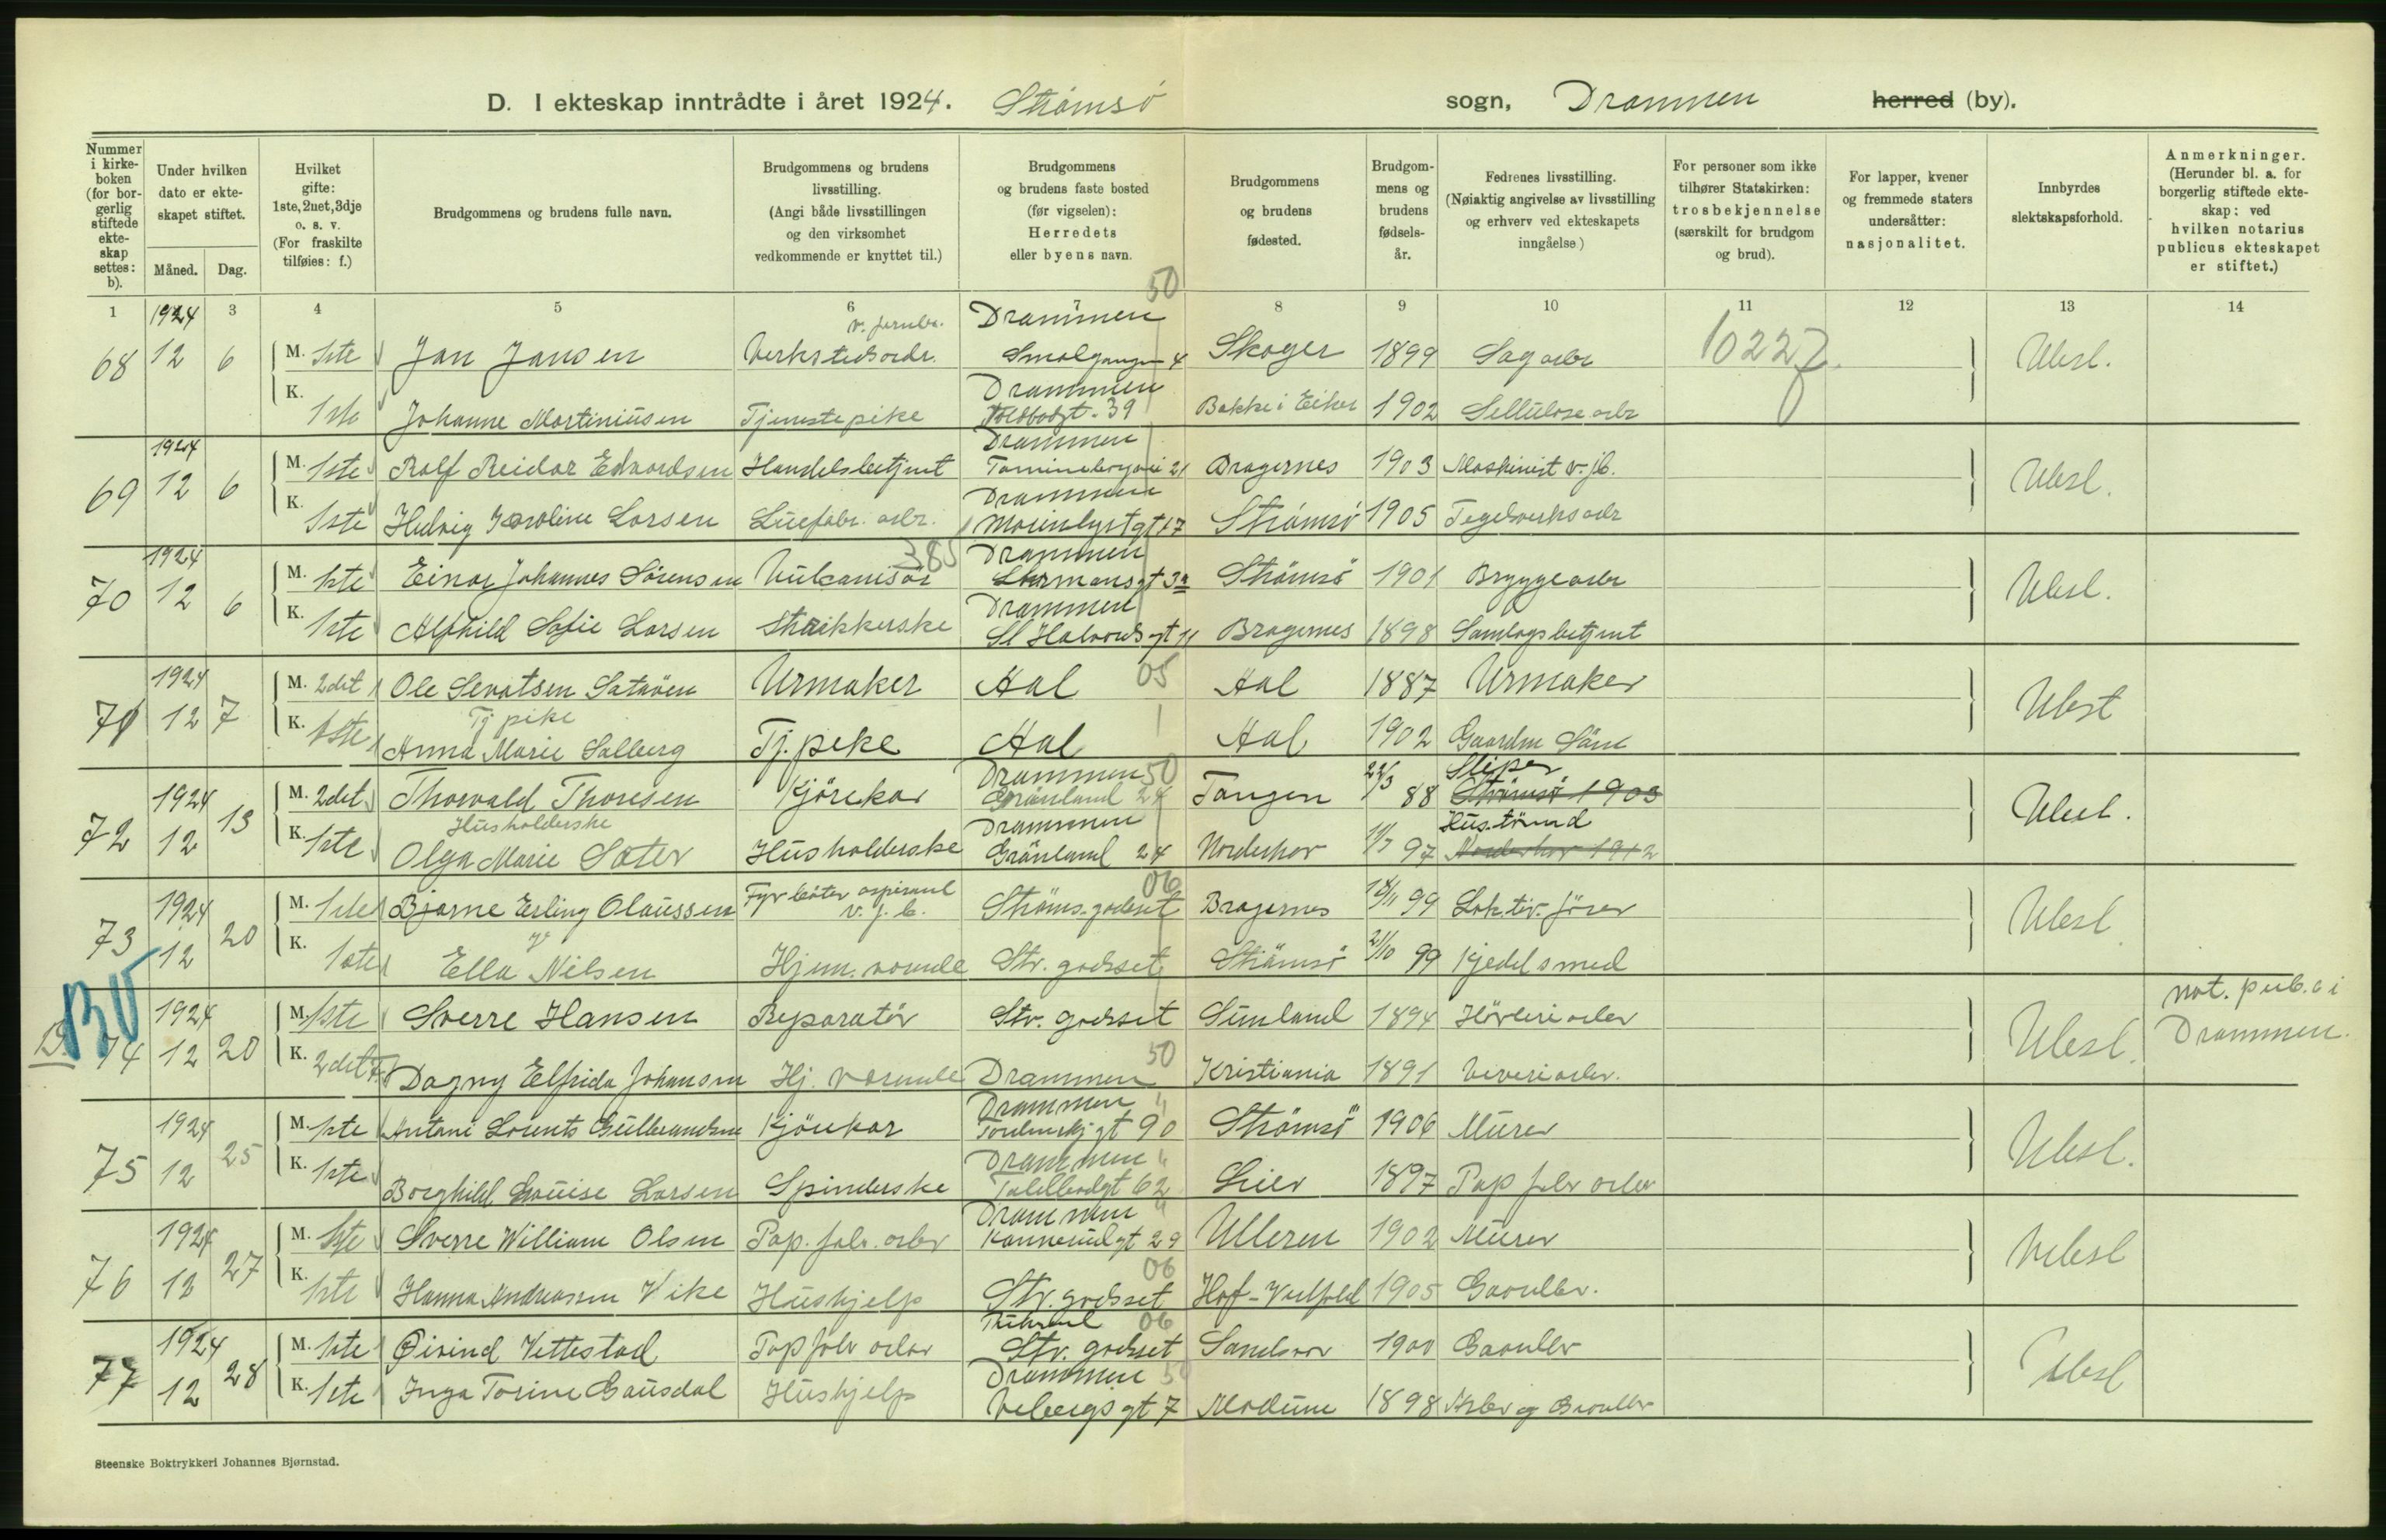 D. I ekteskap inntrådte i året 1924. Strømsø sogn, Drammen herred (by).
Nummer i kirkeboken (for borgerlig stiftede ekteskap settes: b).
Under hvilken dato er ekteskapet stiftet.
Måned. Dag.
Hvilket gifte: 1ste, 2net, 3dje o. s. v. (For fraskilte tilføies: f.)
Brudgommens og brudens fulle navn.
Brudgommens og brudens livsstilling. (Angi både livsstillingen og den virksomhet vedkommende er knyttet til.)
Brudgommens og brudens faste bosted (før vigselen): Herredets eller byens navn.
Brudgommens og brudens fødested.
Brudgommens og brudens fødselsår.
Fedrenes livsstilling. (Nøiaktig angivelse av livsstilling og erhverv ved ekteskapets inngåelse)
For personer som ikke tilhører Statskirken: trosbekjennelse (særskilt for brudgom og brud).
For lapper, kvener og fremmede staters undersåtter: nasjonalitet.
Innbyrdes slektskapsforhold.
Anmerkninger. (Herunder bl. a. for borgerlig stiftede ekteskap: ved hvilken notarius publicus ekteskapet er stiftet.)
1 3 4 5 6 7 8 9 10 11 12 13 14
50
68 1924 12 6 M. 1ste Jan Jansen Verkstedsarb. v. jernb. Drammen Smalgangen 4 Skoger 1899 Sagarb 10227 Ubesl.
K. 1ste Johanne Martiniusen Tjenestepike Drammen 39 Bakke i Eiker 1902 Sellulose arb
69 1924 12 6 M. 1ste Rolf Reidar Edvardsen Handelsbetjent Drammen 21 Bragernes 1903 Maskinist v. jb. Ubesl.
K. 1ste Hedvig Karoline Larsen Luefabr. arb. Drammen Marienlystgt 17 Strømsø 1905 Tegelverksarb
385
70 1924 12 6 M. 1ste Einar Johannes Sørensen Vulcanisør Drammen Strømsø 1901 Bryggearb Ubesl.
K. 1ste Alfhild Sofie Larsen Strikkerske Drammen St Halvardsgt 11 Bragernes 1898 Samlagsbetjent
71 1924 12 7 M. 2det Ole Sevatsen Satrøen Urmaker Aal 05 Aal 1887 Urmaker Ubesl
K. 1ste Tj pike Anna Marie Solberg Tj. pike Aal Aal 1902 Gaardm
72 1924 12 13 M. 2det Thorvald Thoresen Kjørekar Drammen 50 Grønland 24 Tangen 22/3 88 Sliper Strømsø 1903 Ubesl.
K. 1ste Husholderske Olga Marie Sæter Husholderske Drammen Grønland 24 Norderhov 11/7 97 Hus.mand Norderhov 1912
73 1924 12 20 M. 1ste Bjarne Erling Olaussen Fyrbøter aspirant v. j. b. Strøms.godset 06 Bragernes 99 Lok.tiv.fører Ubesl
K. 1ste Ella Nielsen Hjem. værende Str. godset Strømsø 21/10 99 Kjedelsmed
B. BV 74 1924 12 20 M. 1ste Sverre Hansen Reparatør Str. godset Sunland 1894 Høvleriarb Ubesl. not. pub. i Drammen.
K. 2det f. Dagny Elfrida Johansen Hj. værende Drammen 50 Kristiania 1891 Veveriarb.
75 1924 12 25 M. 1ste Antoni Lorents Gulbrandsen Kjørekar Drammen " Tordenskj gt 90 Strømsø 1906 Murer Ubesl.
K. 1ste Borghild Louise Larsen Spinderske Drammen " Tolelbodgt 62 Lier 1897 Pap fabr arb
76 1924 12 27 M. 1ste Sverre William Olsen Pap. fabr. arb Drammen " 29 Ulleren 1902 Murer Ubesl
K. 1ste Hanna Andreassen Vike Hushjelp Str. godset 06 Hof-Vestfold 1905 Gaardbr.
77 1924 12 28 M. 1ste Øivind Vettestad Pap fabr arb Str. godset 06 Sandsvær 1900 Gaardbr Ubesl
K. 1ste Inga Torine Gausdal Hushjelp Drammen 50 Vebergsgt 7 Modum 1898 Arb og Gaardbr
Steenske Boktrykkeri Johannes Bjørnstad.